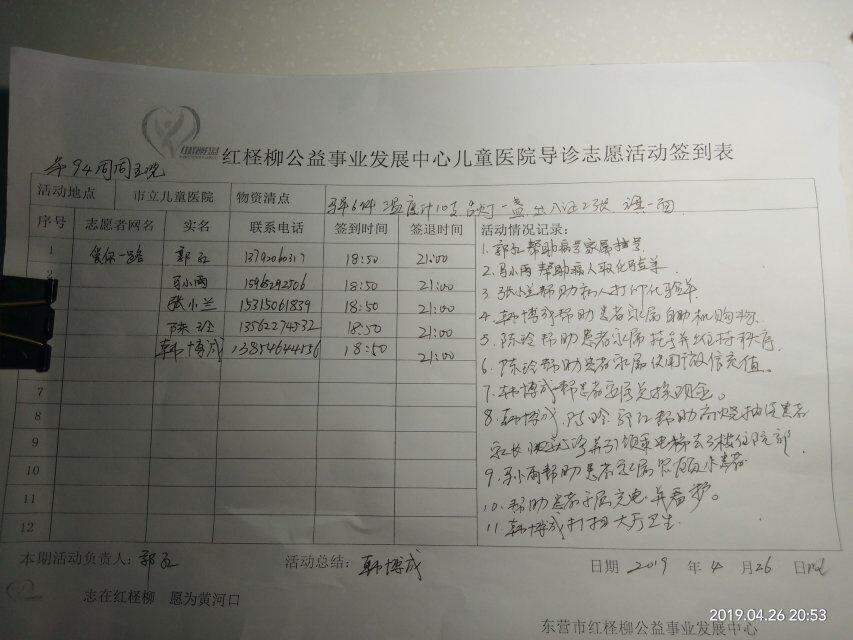 红柽柳公益事业发展中心儿童医院导诊志愿活动签到表
第94周周五晚
活动地点 市立儿童医院 物资清点 温度计10支 台灯一盏 出入证2张 旗一面
序号 志愿者网名 实名 联系电话 签到时间 签退时间 活动情况记录:
1 郭红 18:50 21:00
马小雨 18:50 21:00
张小兰 15315061839 18:50 21:00
陈玲 13562274532 18:50 21:00
韩博成 13854644556 18:50 21:00
7
8
9
10
11
12
1.郭红帮助患者家属挂号
2.马小雨帮助病人取化验单
3.张小兰帮助病人打印化验单
4.韩博成帮助患者家属自助机购物
5.陈玲帮助患者家属挂号并维持秩序
6.陈玲帮助患者家属使用微信充值。
7.韩博成帮患者家属兑换现金。
8.韩博成,陈玲,郭红帮助高烧抽搐患者
家长 并引领乘电梯去3楼住院部
9.马小雨帮助患者家属照顾小患者
10.帮助患者家属充电并看护。
11.韩博成打扫大厅卫生
本期活动负责人: 郭红 活动总结: 韩博成 日期 2019 年 4 月 26 日
志在红柽柳 愿为黄河口
东营市红柽柳公益事业发展中心
2019.04.26 20:53